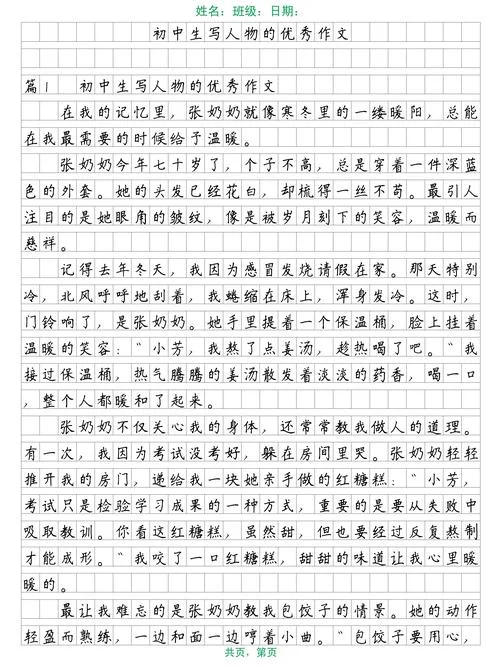 姓名：班级：日期：
初中生写人物的优秀作文
篇1 初中生写人物的优秀作文
在我的记忆里，张奶奶就像寒冬里的一缕暖阳，总能
在我最需要的时候给予温暖。
张奶奶今年七十岁了，个子不高，总是穿着一件深蓝
色的外套。她的头发已经花白，却梳得一丝不苟。最引人
注目的是她眼角的皱纹，像是被岁月刻下的笑容，温暖而
慈祥。
记得去年冬天，我因为感冒发烧请假在家。那天特别
冷，北风呼呼地刮着，我蜷缩在床上，浑身发冷。这时，
门铃响了，是张奶奶。她手里提着一个保温桶，脸上挂着
温暖的笑容："小芳，我熬了点姜汤，趁热喝了吧。"我
接过保温桶，热气腾腾的姜汤散发着淡淡的药香，喝一口
，整个人都暖和了起来。
张奶奶不仅关心我的身体，还常常教我做人的道理。
有一次，我因为考试没考好，躲在房间里哭。张奶奶轻轻
推开我的房门，递给我一块她亲手做的红糖糕："小芳，
考试只是检验学习成果的一种方式，重要的是要从失败中
吸取教训。你看这红糖糕，虽然甜，但也要经过反复熬制
才能成形。"我咬了一口红糖糕，甜甜的味道让我心里暖
暖的。
最让我难忘的是张奶奶教我包饺子的情景。她的动作
轻盈而熟练，一边和面一边哼着小曲。"包饺子要用心，
共页，第页